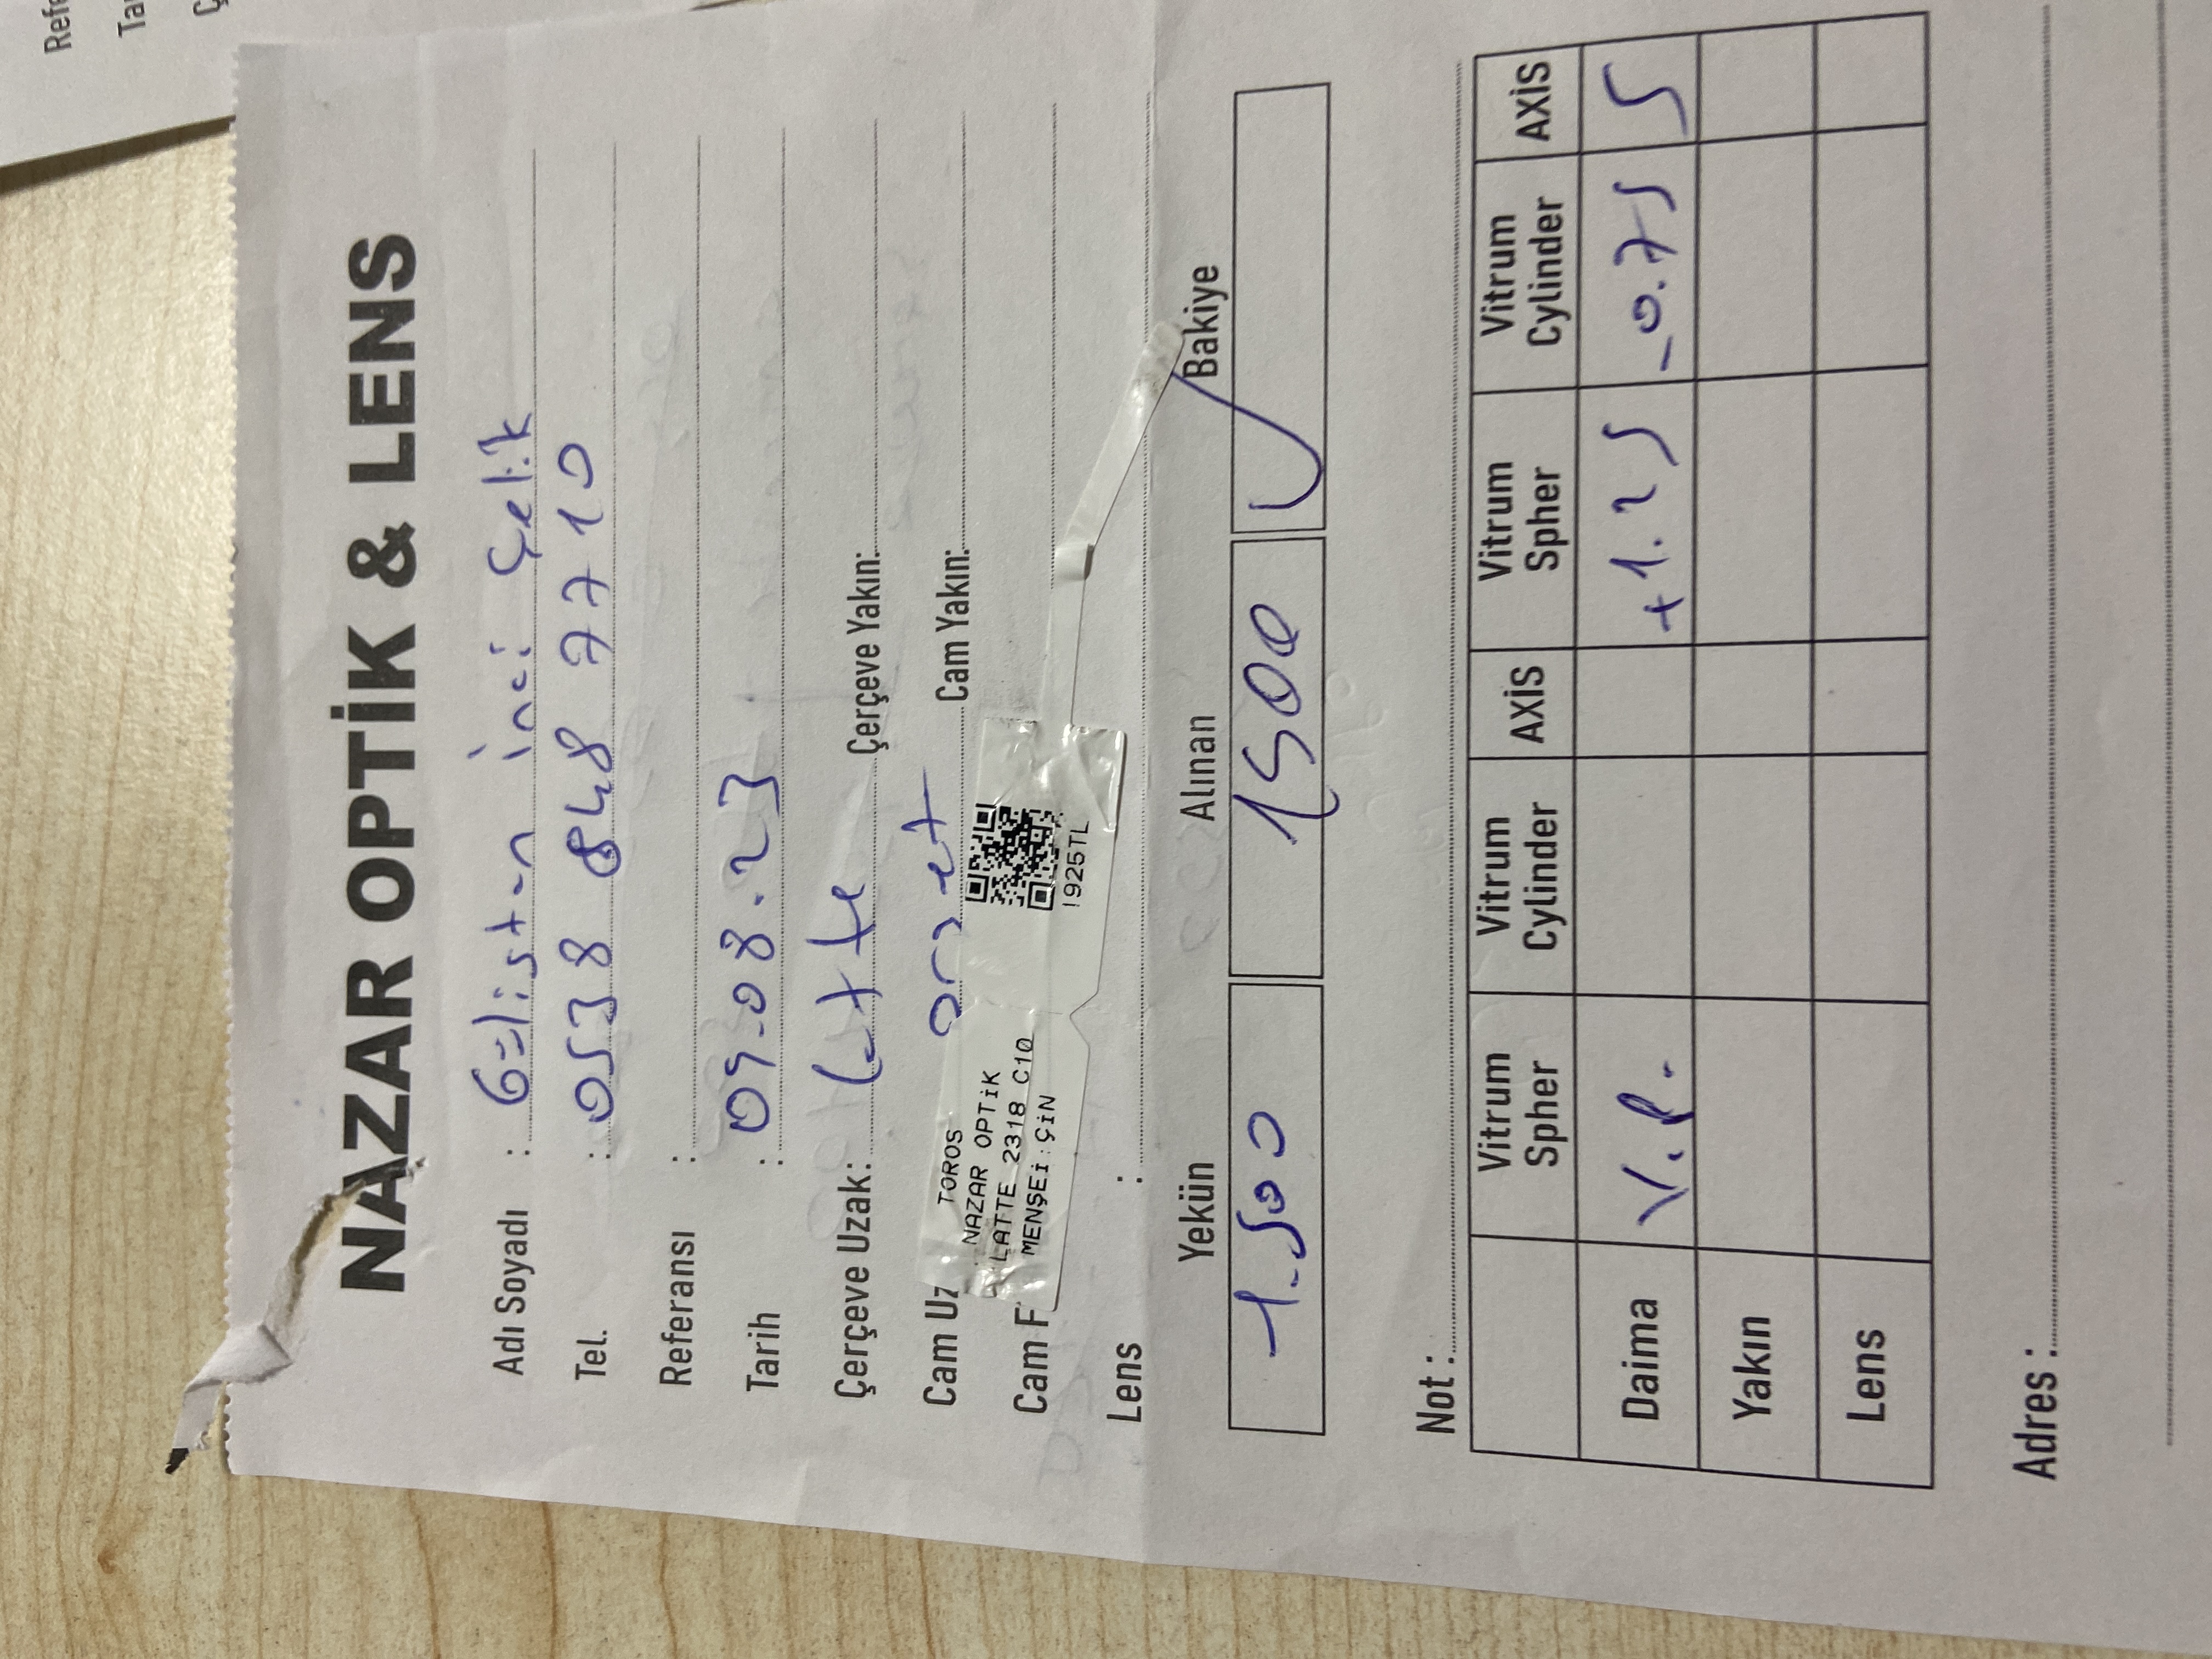 Refe
Ta
Ç
NAZAR OPTİK & LENS
Adı Soyadı : Gülistan inci Çelik
Tel. : 0538 848 7710
Referansı :
Tarih : 09.08.23
Çerçeve Uzak: Latte Çerçeve Yakın:
Cam Uz Cam Yakın:
TOROS
NAZAR OPTİK
LATTE 2318 C10
MENŞEİ:ÇİN
!925TL
Cam F
Lens :
Yekün Alınan Bakiye
1.500 1500
Not :
Vitrum Spher Vitrum Cylinder AXİS Vitrum Spher Vitrum Cylinder AXİS
Daima V.P. +1.25 -0.75 5
Yakın
Lens
Adres :